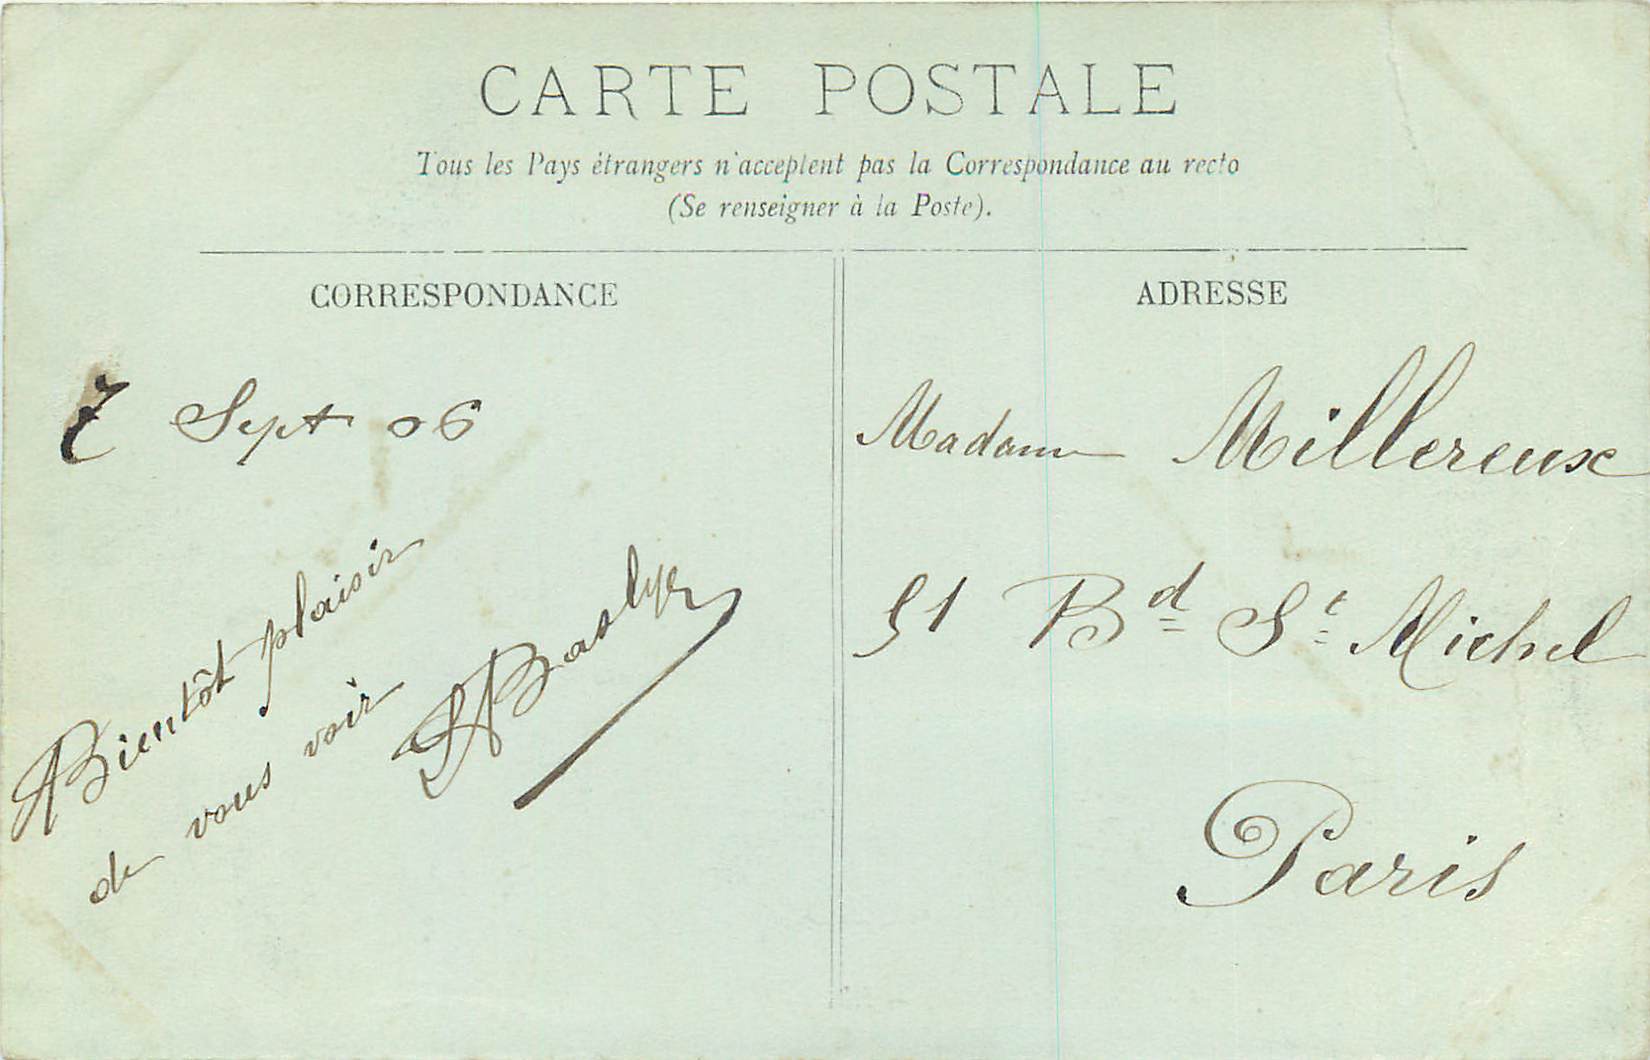 CARTE POSTALE
Tous les Pays étrangers n'acceptent pas la Correspondance au recto
(Se renseigner à la Poste).
CORRESPONDANCE
ADRESSE
7 Sept 06
Bientôt plaisir
de vous voir
Madame Millereux
51 Bd St Michel
Paris